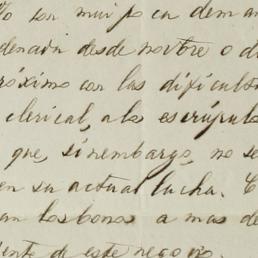 son muy poca deman
denada desde novbre o d
próximo con las dificulta
clerical, a los escrúpulo
que, sinembargo, no se
en su actual lucha. C
an los bonos a mas de
ente de este negocio.